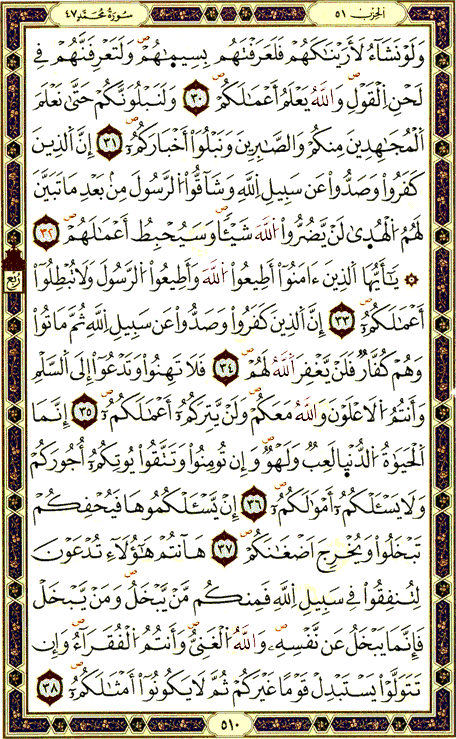 سُورَةُ مُحَمَّد ٤٧
الحِزْبُ ٥١
وَلَوْ نَشَآءُ لَأَرَيْنَٰكَهُمْ فَلَعَرَفْتَهُم بِسِيمَٰهُمْ وَلَتَعْرِفَنَّهُمْ فِي
لَحْنِ اِلْقَوْلِ وَاللَّهُ يَعْلَمُ أَعْمَٰلَكُمْ ٣٠ وَلَنَبْلُوَنَّكُمْ حَتَّىٰ نَعْلَمَ
اَلْمُجَٰهِدِينَ مِنكُمْ وَالصَّٰبِرِينَ وَنَبْلُوَاْ أَخْبَارَكُمْ ٣١ إِنَّ اَلذِينَ
كَفَرُواْ وَصَدُّواْ عَن سَبِيلِ اِللَّهِ وَشَآقُّواْ اُلرَّسُولَ مِنۢ بَعْدِ مَا تَبَيَّنَ
لَهُمُ اُلْهُدَىٰ لَنْ يَّضُرُّواْ اُللَّهَ شَيْـٔاً وَسَيُحْبِطُ أَعْمَٰلَهُمْ ٣٢
۞ يَٰٓأَيُّهَا اَلذِينَ ءَامَنُوٓاْ أَطِيعُواْ اُللَّهَ وَأَطِيعُواْ اُلرَّسُولَ وَلَا تُبْطِلُوٓاْ
رُبُع
أَعْمَٰلَكُمْ ٣٣ إِنَّ اَلذِينَ كَفَرُواْ وَصَدُّواْ عَن سَبِيلِ اِللَّهِ ثُمَّ مَاتُواْ
وَهُمْ كُفَّارٌ فَلَنْ يَّغْفِرَ اَللَّهُ لَهُمْ ٣٤ فَلَا تَهِنُواْ وَتَدْعُوٓاْ إِلَى اَلسَّلْمِ
وَأَنتُمُ اُلْأَعْلَوْنَ وَاللَّهُ مَعَكُمْ وَلَنْ يَّتِرَكُمْ أَعْمَٰلَكُمْ ٣٥ إِنَّمَا
اَلْحَيَوٰةُ اُلدُّنْيَا لَعِبٌ وَلَهْوٌ وَإِن تُومِنُواْ وَتَتَّقُواْ يُوتِكُمْ أُجُورَكُمْ
وَلَا يَسْـَٔلْكُمْ أَمْوَٰلَكُمْ ٣٦ إِنْ يَّسْـَٔلْكُمُوهَا فَيُحْفِكُمْ
تَبْخَلُواْ وَيُخْرِجَ اَضْغَٰنَكُمْ ٣٧ هَآنتُمْ هَٰٓؤُلَآءِ تُدْعَوْنَ
لِتُنفِقُواْ فِي سَبِيلِ اِللَّهِ فَمِنكُم مَّنْ يَّبْخَلُ وَمَنْ يَّبْخَلْ
فَإِنَّمَا يَبْخَلُ عَن نَّفْسِهِۦ وَاللَّهُ اُلْغَنِيُّ وَأَنتُمُ اُلْفُقَرَآءُ وَإِن
تَتَوَلَّوْاْ يَسْتَبْدِلْ قَوْماً غَيْرَكُمْ ثُمَّ لَا يَكُونُوٓاْ أَمْثَٰلَكُمْ ٣٨
٥١٠